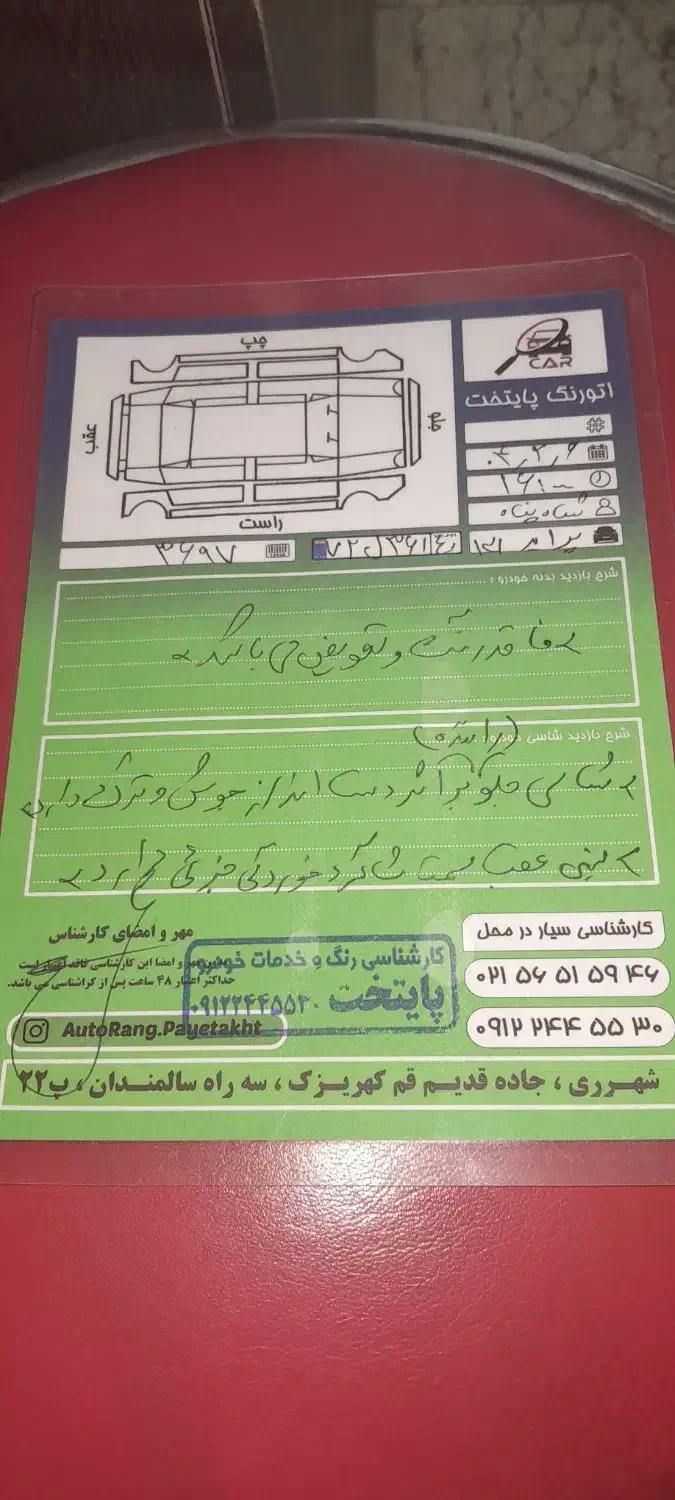 CAR
اتورنگ پایتخت
چپ
عقب
جلو
راست
#
۰۴٫۲٫۶
۱۶:۰۰
شاه پناه
پراید ۱۳۱
۳۶۹۷
شرح بازدید بدنه خودرو :
فاقد رنگ و تعویض می باشد
شرح بازدید شاسی خودرو :
شاسی جلو بر اثر دست انداز جوش و ترک دارد
سینی عقب سمت شاگرد خوردگی جزئی دارد
کارشناسی سیار در محل
۰۲۱ ۵۶ ۵۱ ۵۹ ۴۶
۰۹۱۲ ۲۴۴ ۵۵ ۳۰
مهر و امضای کارشناس
بدون مهر و امضا این کارشناسی فاقد اعتبار است
حداکثر اعتبار ۴۸ ساعت پس از کارشناسی می باشد.
کارشناسی رنگ و خدمات خودرو
پایتخت
۰۹۱۲۲۴۴۵۵۳۰
AutoRang.Payetakht
شهرری ، جاده قدیم قم کهریزک ، سه راه سالمندان ، پ۲۲